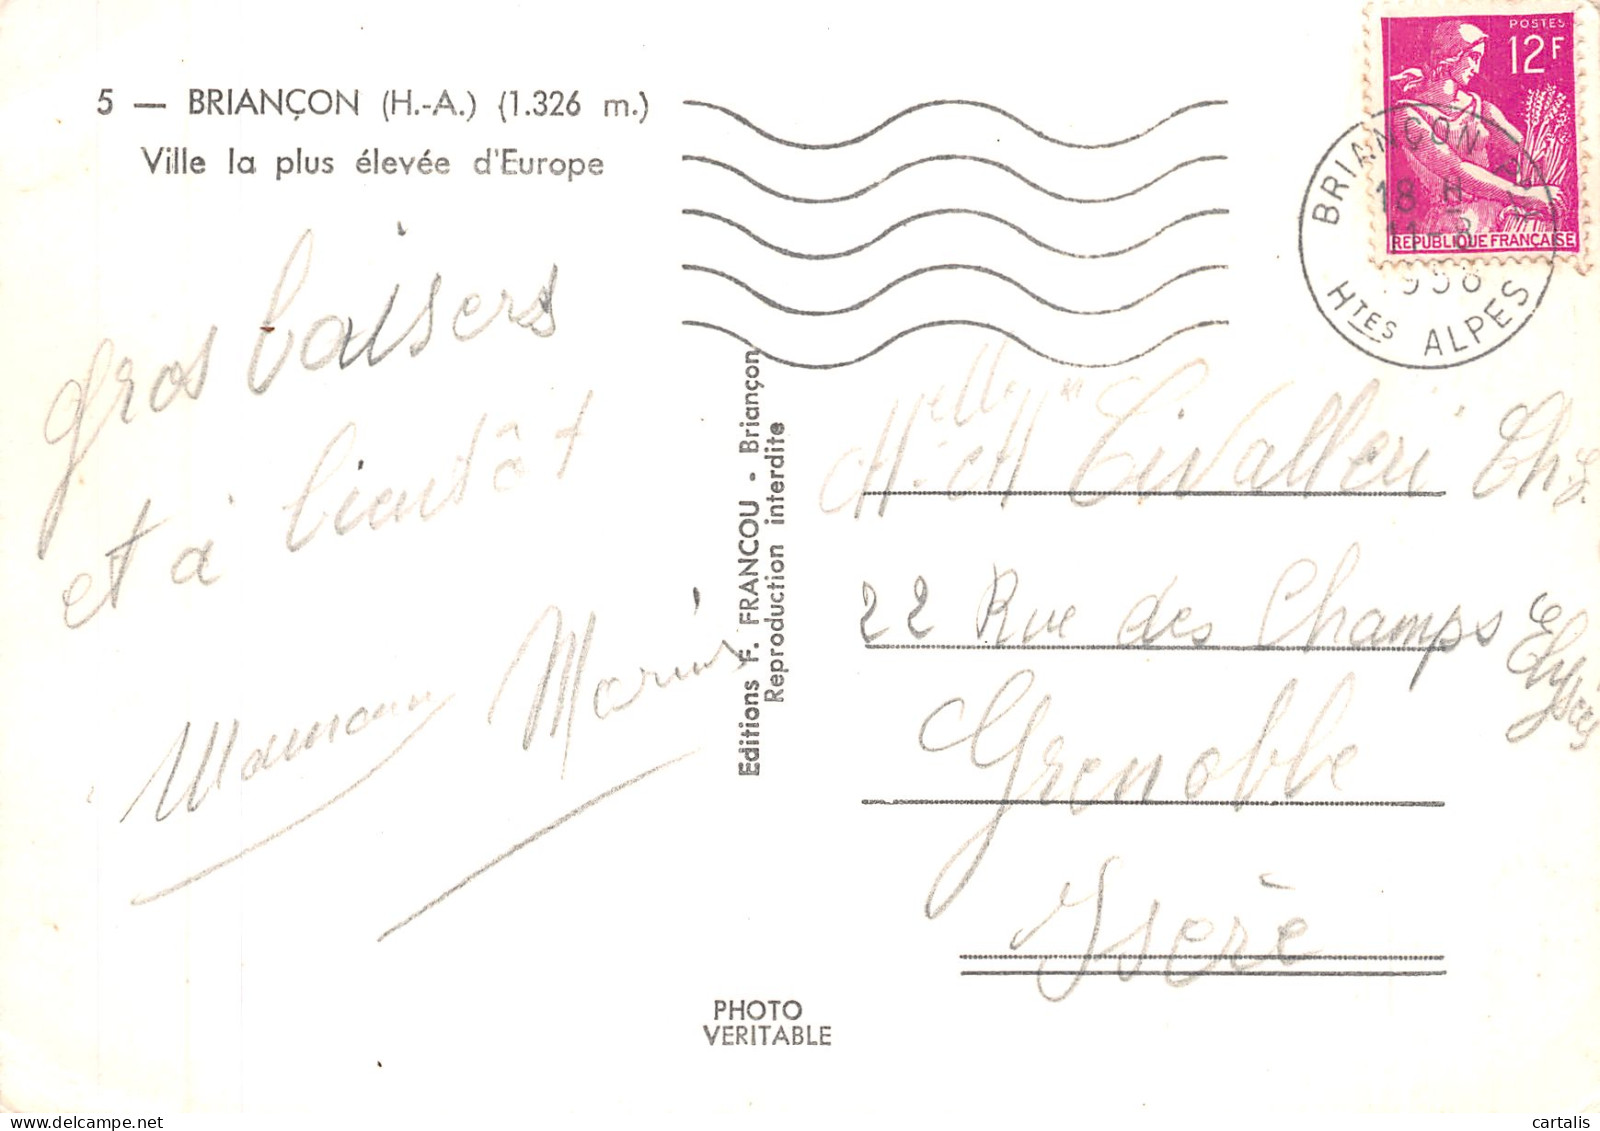 5 — BRIANÇON (H.-A.) (1.326 m.)
Ville la plus élevée d'Europe
gros baisers
et à bientôt
Maman Marius
Editions F. FRANCOU - Briançon
Reproduction interdite
PHOTO
VERITABLE
POSTES
12F
REPUBLIQUE FRANÇAISE
BRIANÇON
18 H
11-8
1958
HTES ALPES
et
22 Rue des Champs Elysées
Grenoble
Isère
cartalis